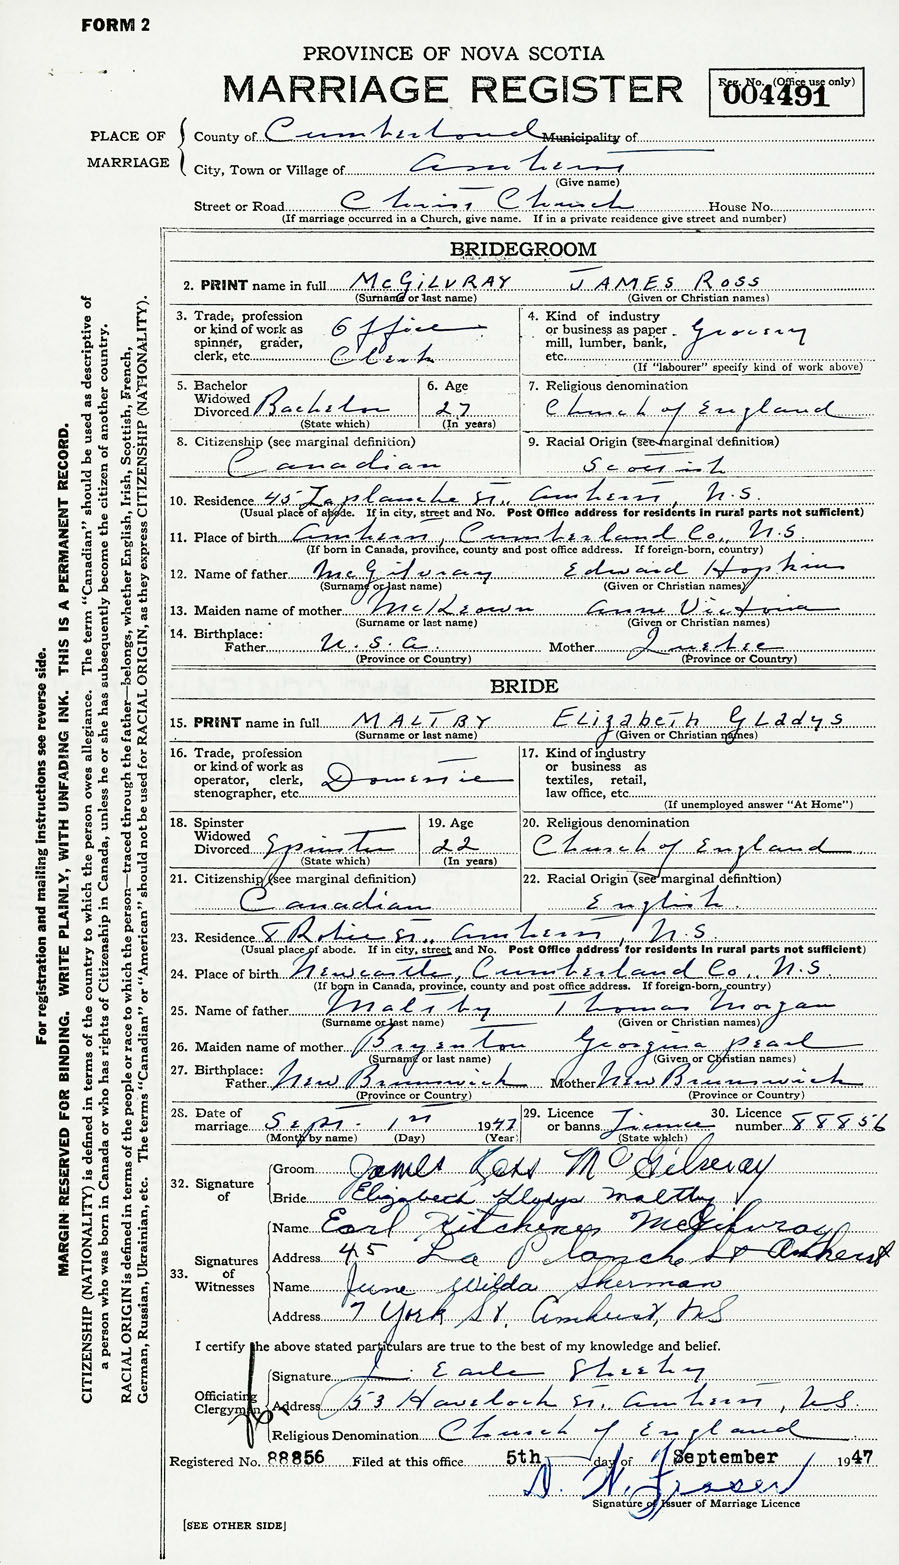 FORM 2
PROVINCE OF NOVA SCOTIA
MARRIAGE REGISTER
Reg. No. (Office use only)
004491
PLACE OF MARRIAGE
County of Cumberland Municipality of
City, Town or Village of Amherst
(Give name)
Street or Road Christ Church House No.
(If marriage occurred in a Church, give name. If in a private residence give street and number)
BRIDEGROOM
2. PRINT name in full McGILVRAY JAMES ROSS
(Surname or last name) (Given or Christian names)
3. Trade, profession or kind of work as spinner, grader, clerk, etc. Office Clerk
4. Kind of industry or business as paper mill, lumber, bank, etc. Grocery
(If "labourer" specify kind of work above)
5. Bachelor Widowed Divorced Bachelor
(State which)
6. Age 27
(In years)
7. Religious denomination
Church of England
8. Citizenship (see marginal definition)
Canadian
9. Racial Origin (see marginal definition)
Scottish
10. Residence 45 Laplanche St., Amherst, N.S.
(Usual place of abode. If in city, street and No. Post Office address for residents in rural parts not sufficient)
11. Place of birth Amherst, Cumberland Co., N.S.
(If born in Canada, province, county and post office address. If foreign-born, country)
12. Name of father McGilvray Edward Hopkins
(Surname or last name) (Given or Christian names)
13. Maiden name of mother McKeown Anne Victoria
(Surname or last name) (Given or Christian names)
14. Birthplace:
Father U.S.A. Mother Quebec
(Province or Country) (Province or Country)
BRIDE
15. PRINT name in full MALTBY ElizabEth GLAdyS
(Surname or last name) (Given or Christian names)
16. Trade, profession or kind of work as operator, clerk, stenographer, etc. Domestic
17. Kind of industry or business as textiles, retail, law office, etc.
(If unemployed answer "At Home")
18. Spinster Widowed Divorced Spinster
(State which)
19. Age 22
(In years)
20. Religious denomination
Church of England
21. Citizenship (see marginal definition)
Canadian
22. Racial Origin (see marginal definition)
English.
23. Residence 8 Robie St., Amherst, N.S.
(Usual place of abode. If in city, street and No. Post Office address for residents in rural parts not sufficient)
24. Place of birth Newcastle, Cumberland Co., N.S.
(If born in Canada, province, county and post office address. If foreign-born, country)
25. Name of father Maltby Thomas Morgan
(Surname or last name) (Given or Christian names)
26. Maiden name of mother Bryenton Georgina Pearl
(Surname or last name) (Given or Christian names)
27. Birthplace:
Father New Brunswick Mother New Brunswick
(Province or Country) (Province or Country)
28. Date of marriage Sept. 1st 1947
(Month by name) (Day) (Year)
29. Licence or banns Licence
(State which)
30. Licence number 88856
32. Signature of
Groom James Ross McGilvray
Bride Elizabeth Gladys Maltby
33. Signatures of Witnesses
Name Earl Kitchener McGilvray
Address 45 La Planche St Amherst
Name June Wilda Sherman
Address 7 York St, Amherst, NS
I certify the above stated particulars are true to the best of my knowledge and belief.
Officiating Clergyman
Signature J. Earle Sheehy
Address 53 Havelock St. Amherst, N.S.
Religious Denomination Church of England
Registered No. 88856 Filed at this office 5th day of September 1947
D. N. Fraser
Signature of Issuer of Marriage Licence
[SEE OTHER SIDE]
For registration and mailing instructions see reverse side.
MARGIN RESERVED FOR BINDING. WRITE PLAINLY, WITH UNFADING INK. THIS IS A PERMANENT RECORD.
CITIZENSHIP (NATIONALITY) is defined in terms of the country to which the person owes allegiance. The term "Canadian" should be used as descriptive of
a person who was born in Canada or who has rights of Citizenship in Canada, unless he or she has subsequently become the citizen of another country.
RACIAL ORIGIN is defined in terms of the people or race to which the person—traced through the father—belongs, whether English, Irish, Scottish, French,
German, Russian, Ukrainian, etc. The terms "Canadian" or "American" should not be used for RACIAL ORIGIN, as they express CITIZENSHIP (NATIONALITY).